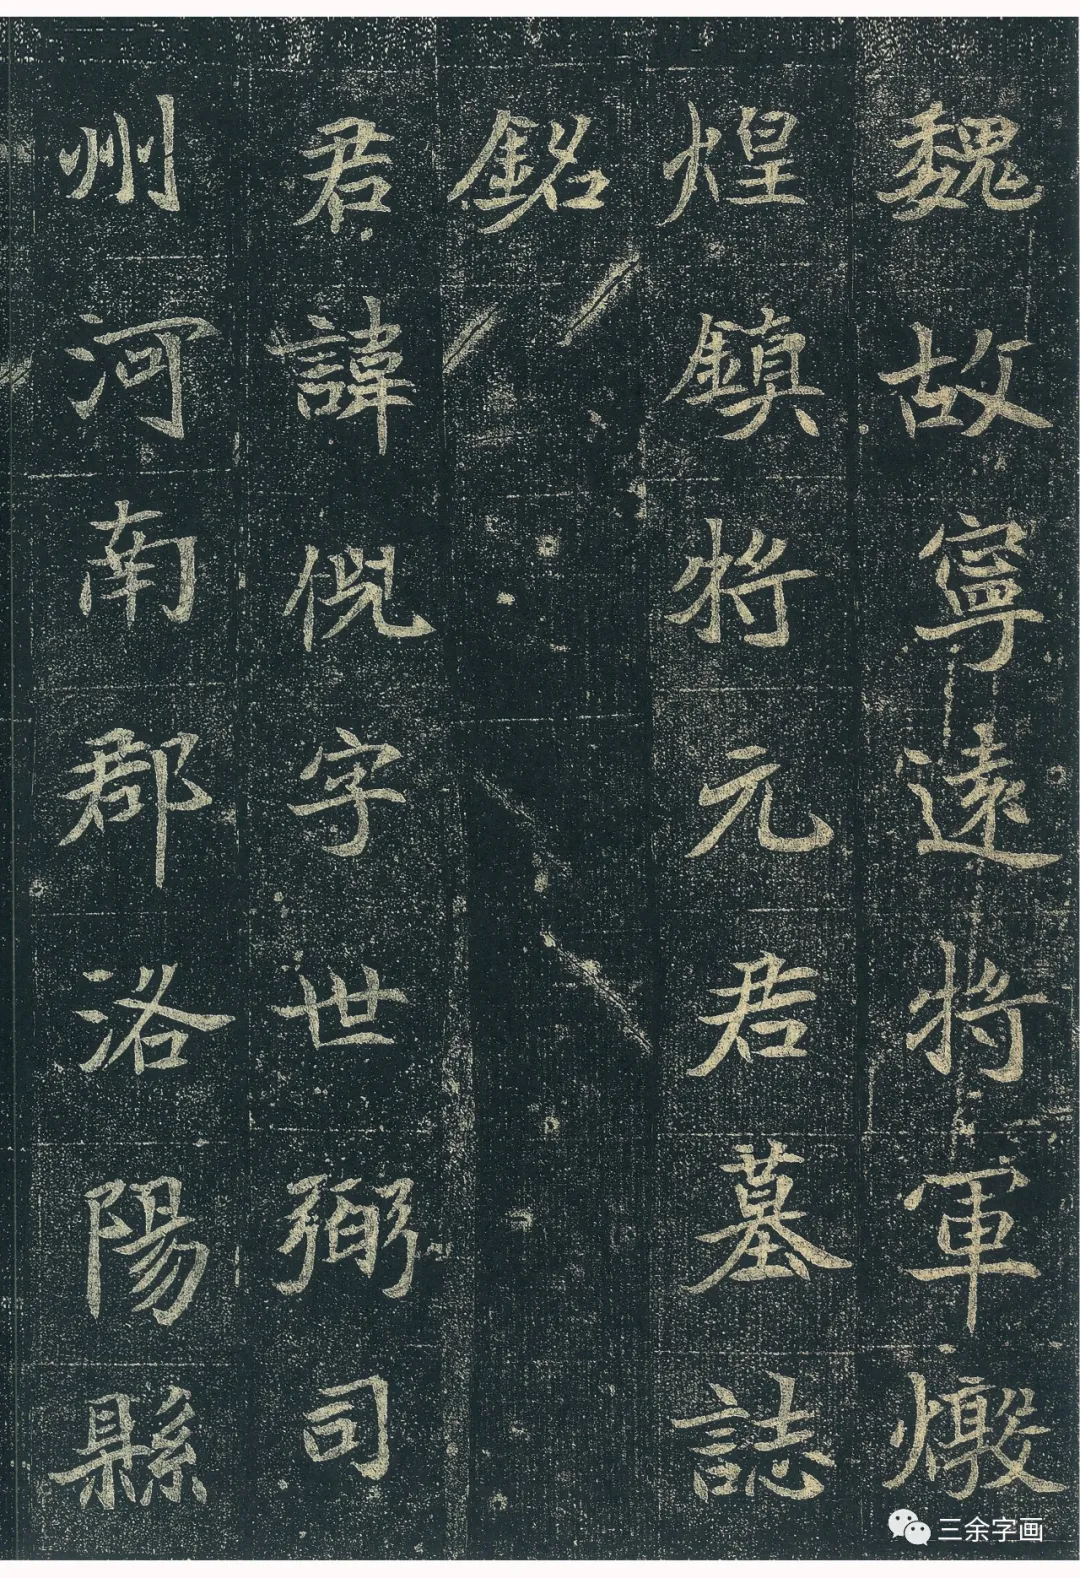 魏故寧遠將軍燉
煌鎮將元君墓誌
銘
君諱倪字世弼司
州河南郡洛陽縣
三余字画